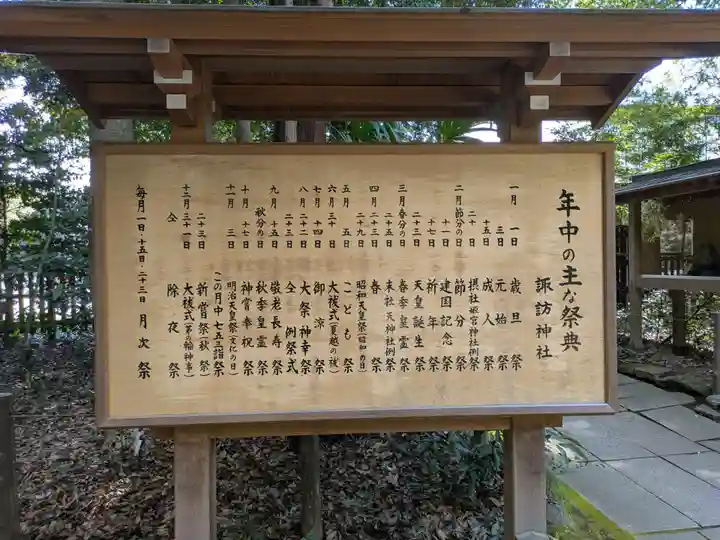 年中の主な祭典
諏訪神社
一月 一日 歳旦祭
三日 元始祭
十五日 成人祭
二十日 摂社姫宮神社例祭
二月 節分の日 節分祭
十一日 建国記念祭
十七日 祈年祭
二十三日 天皇誕生祭
三月 春分の日 春季皇霊祭
二十五日 末社天神社例祭
四月 二十三日 春祭
二十九日 昭和天皇祭(昭和の日)
五月 五日 こども祭
六月 三十日 大祓式(夏越の祓)
七月 十四日 御涼祭
八月 二十二日 大祭神幸祭
二十三日 仝 例祭式
九月 十五日 敬老長寿祭
秋分の日 秋季皇霊祭
十月 十七日 神嘗奉祝祭
十一月 三日 明治天皇祭(文化の日)
(この月中 七五三詣祭)
二十三日 新嘗祭(秋祭)
十二月 三十一日 大祓式(茅の輪神事)
仝 除夜祭
毎月一日・十五日・二十三日 月次祭